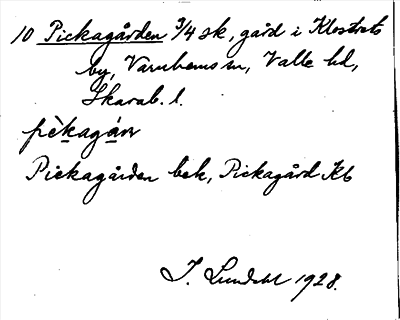 10 Pickagården 3/4 sk, gård i Klostrets
by, Varnhems sn, Valle hd,
Skarab. l.
pèkagán
Pickagården bek, Pickagård Kb
J. Lundahl 1928.